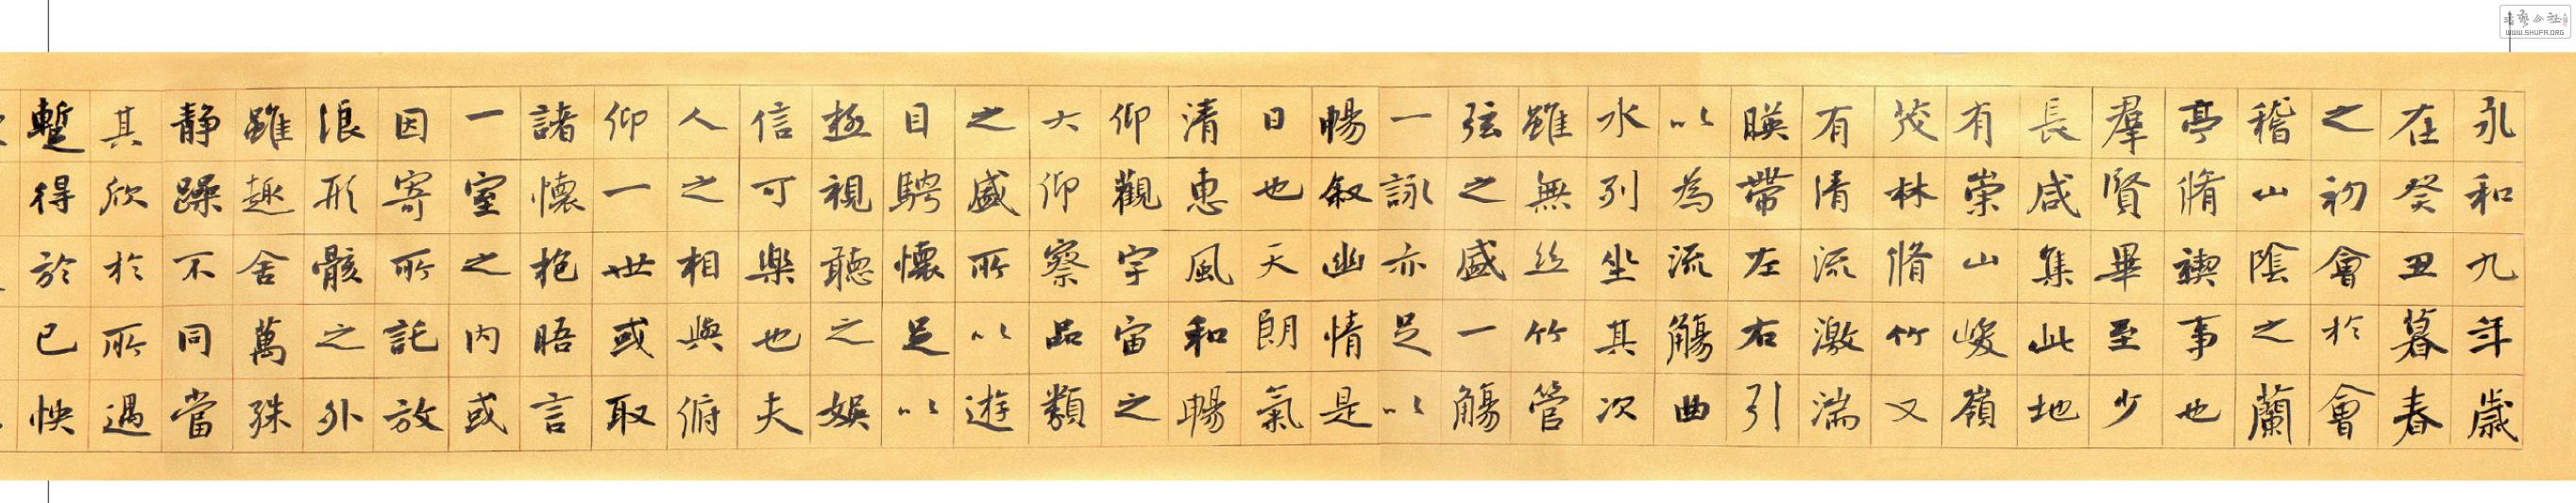 永和九年歲
在癸丑暮春
之初會於會
稽山陰之蘭
亭脩禊事也
羣賢畢至少
長咸集此地
有崇山峻嶺
茂林脩竹又
有清流激湍
暎帶左右引
以為流觴曲
水列坐其次
雖無絲竹管
弦之盛一觴
一詠亦足以
暢叙幽情是
日也天朗氣
清惠風和暢
仰觀宇宙之
大仰察品類
之盛所以遊
目騁懷足以
極視聽之娛
信可樂也夫
人之相與俯
仰一世或取
諸懷抱晤言
一室之内或
因寄所託放
浪形骸之外
雖趣舍萬殊
静躁不同當
其欣於所遇
蹔得於己怏
WWW.SHUFA.ORG